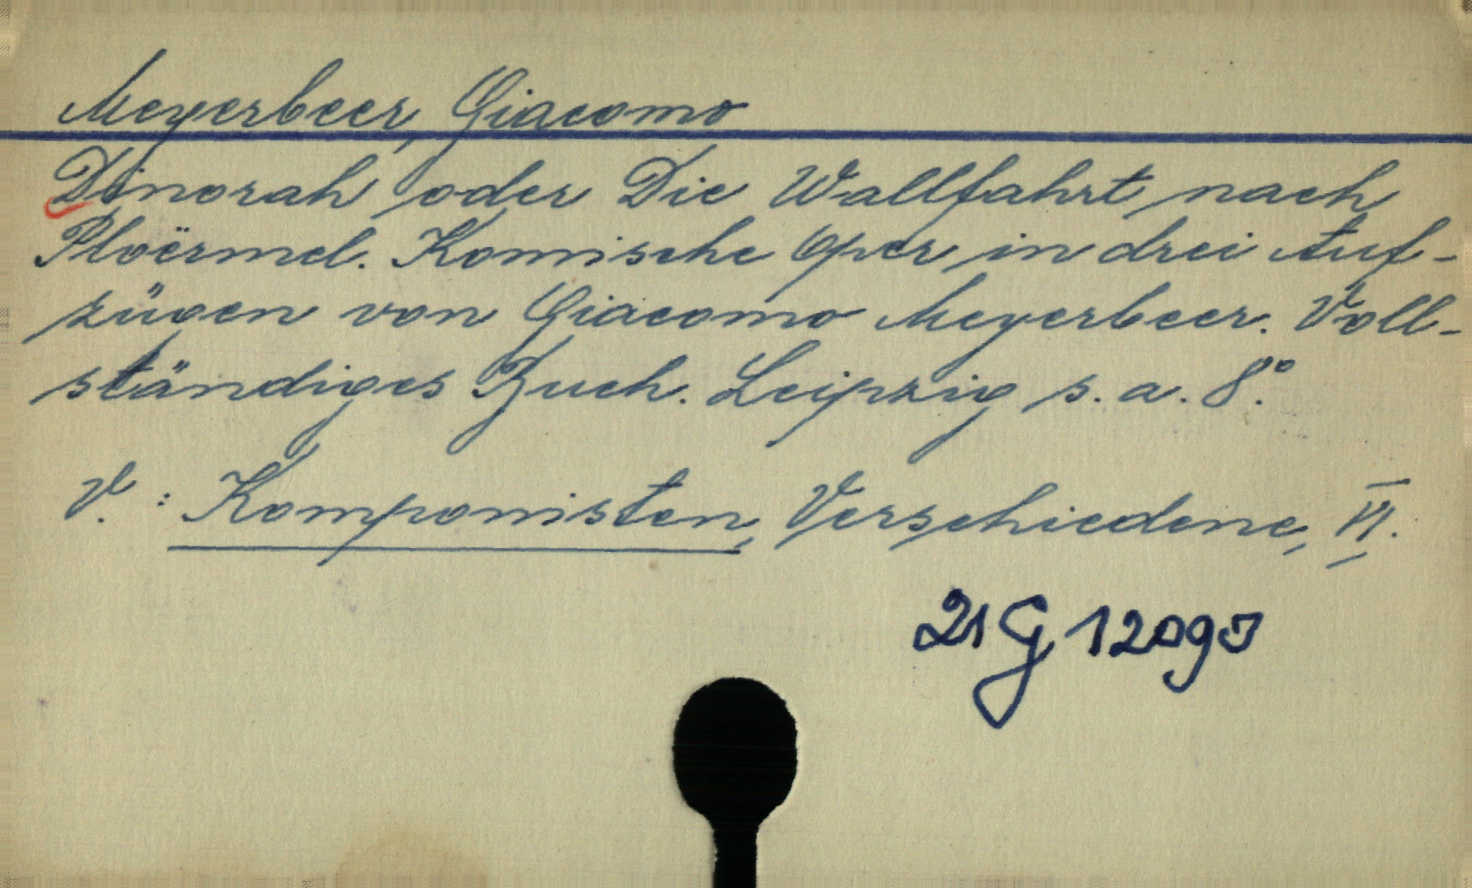 Meyerbeer, Giacomo
Dinorah oder Die Wallfahrt nach
Ploërmel. Komische Oper in drei Auf-
zügen von Giacomo Meyerbeer. Voll-
ständiges Buch. Leipzig s. a. 8.°
V. : Komponisten, Verschiedene, VI.
21 G 12093